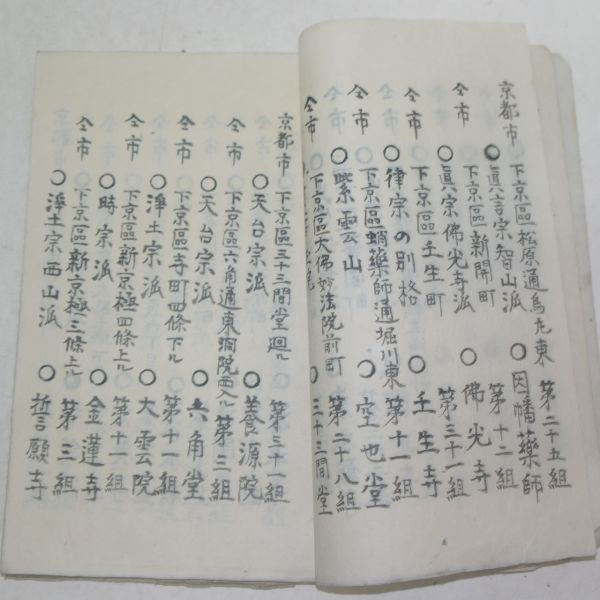 京都市 ○下京區松原通烏丸東 第二十五組
○眞言宗智山派 ○因幡藥師
仝市 下京區新開町 第十二組
○眞宗佛光寺派 ○佛光寺
仝市 下京區壬生町 第三十一組
○律宗の別格 ○壬生寺
仝市 ○下京區蛸藥師通堀川東 第十一組
○紫雲山 ○空也堂
仝市 ○下京區大佛妙法院前町 第二十八組
○三十三間堂
京都市 ○下京區三十三間堂廻ル 第三十一組
○天台宗派 ○養源院
仝市 下京區六角通東洞院西入ル 第三組
○天台宗派 ○六角堂
仝市 下京區寺町四條下ル 第十一組
○淨土宗派 ○大雲院
仝市 下京區新京極四條上ル 第十一組
○時宗派 ○金蓮寺
仝市 下京區新京極三條上ル 第三組
○淨土宗西山派 ○誓願寺